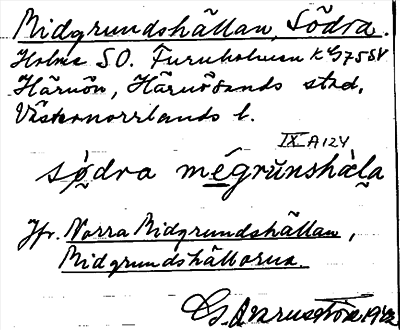 Midgrundshällan, Södra.
Holme SO. Furuholmen
Härnön, Härnösands stad,
Västernorrlands l.
IX A 124
södra mégrunshàla
Jfr. Norra Midgrundshällan,
Midgrundshällorna.